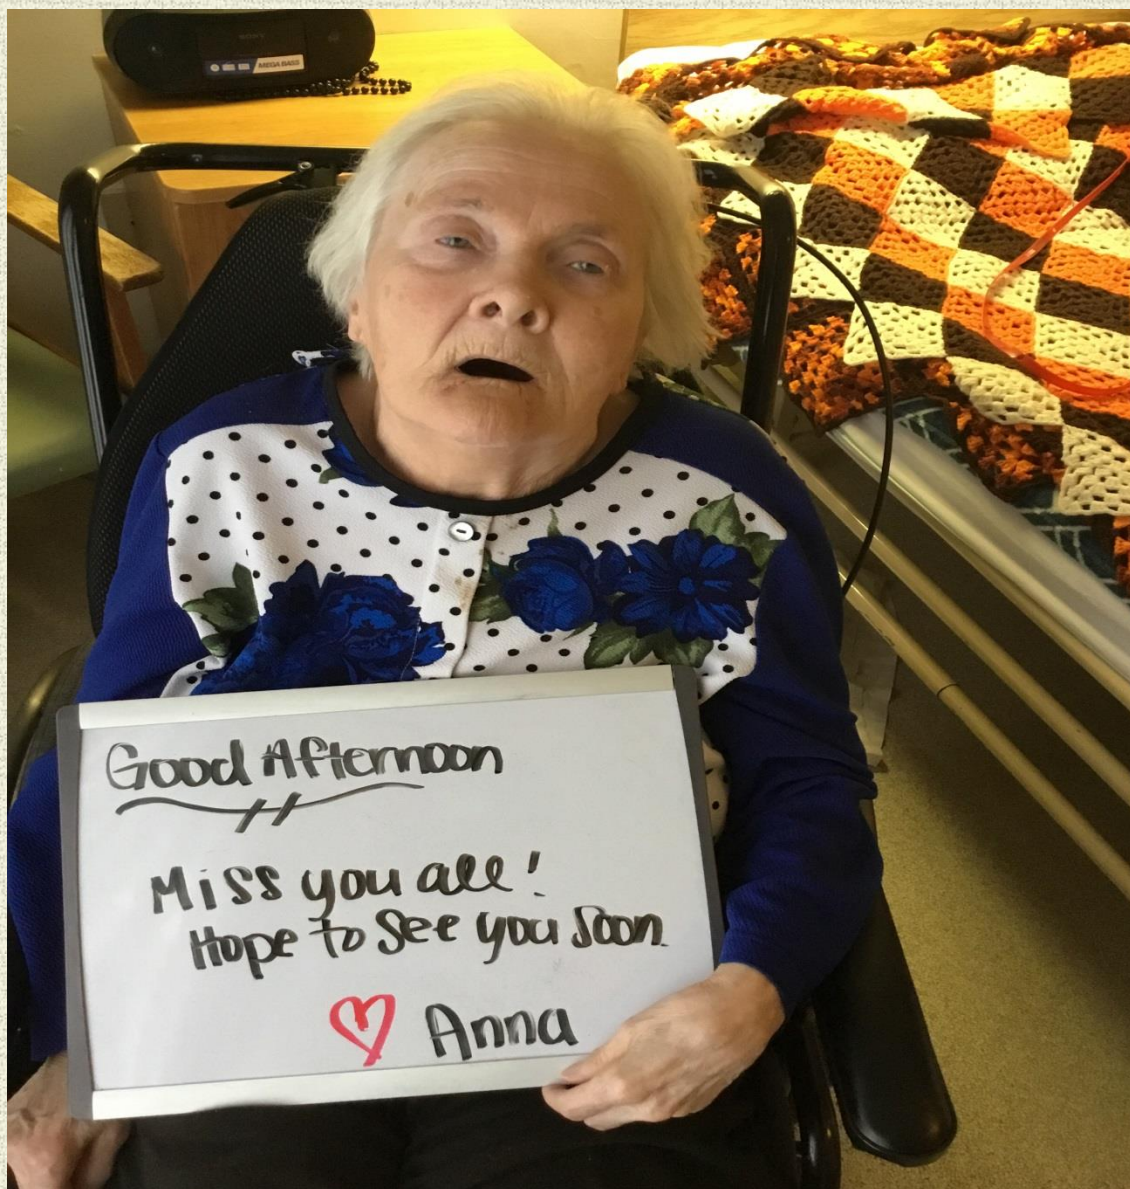 SONY
MEGA BASS
Good Afternoon
Miss you all!
Hope to See you Soon.
Anna